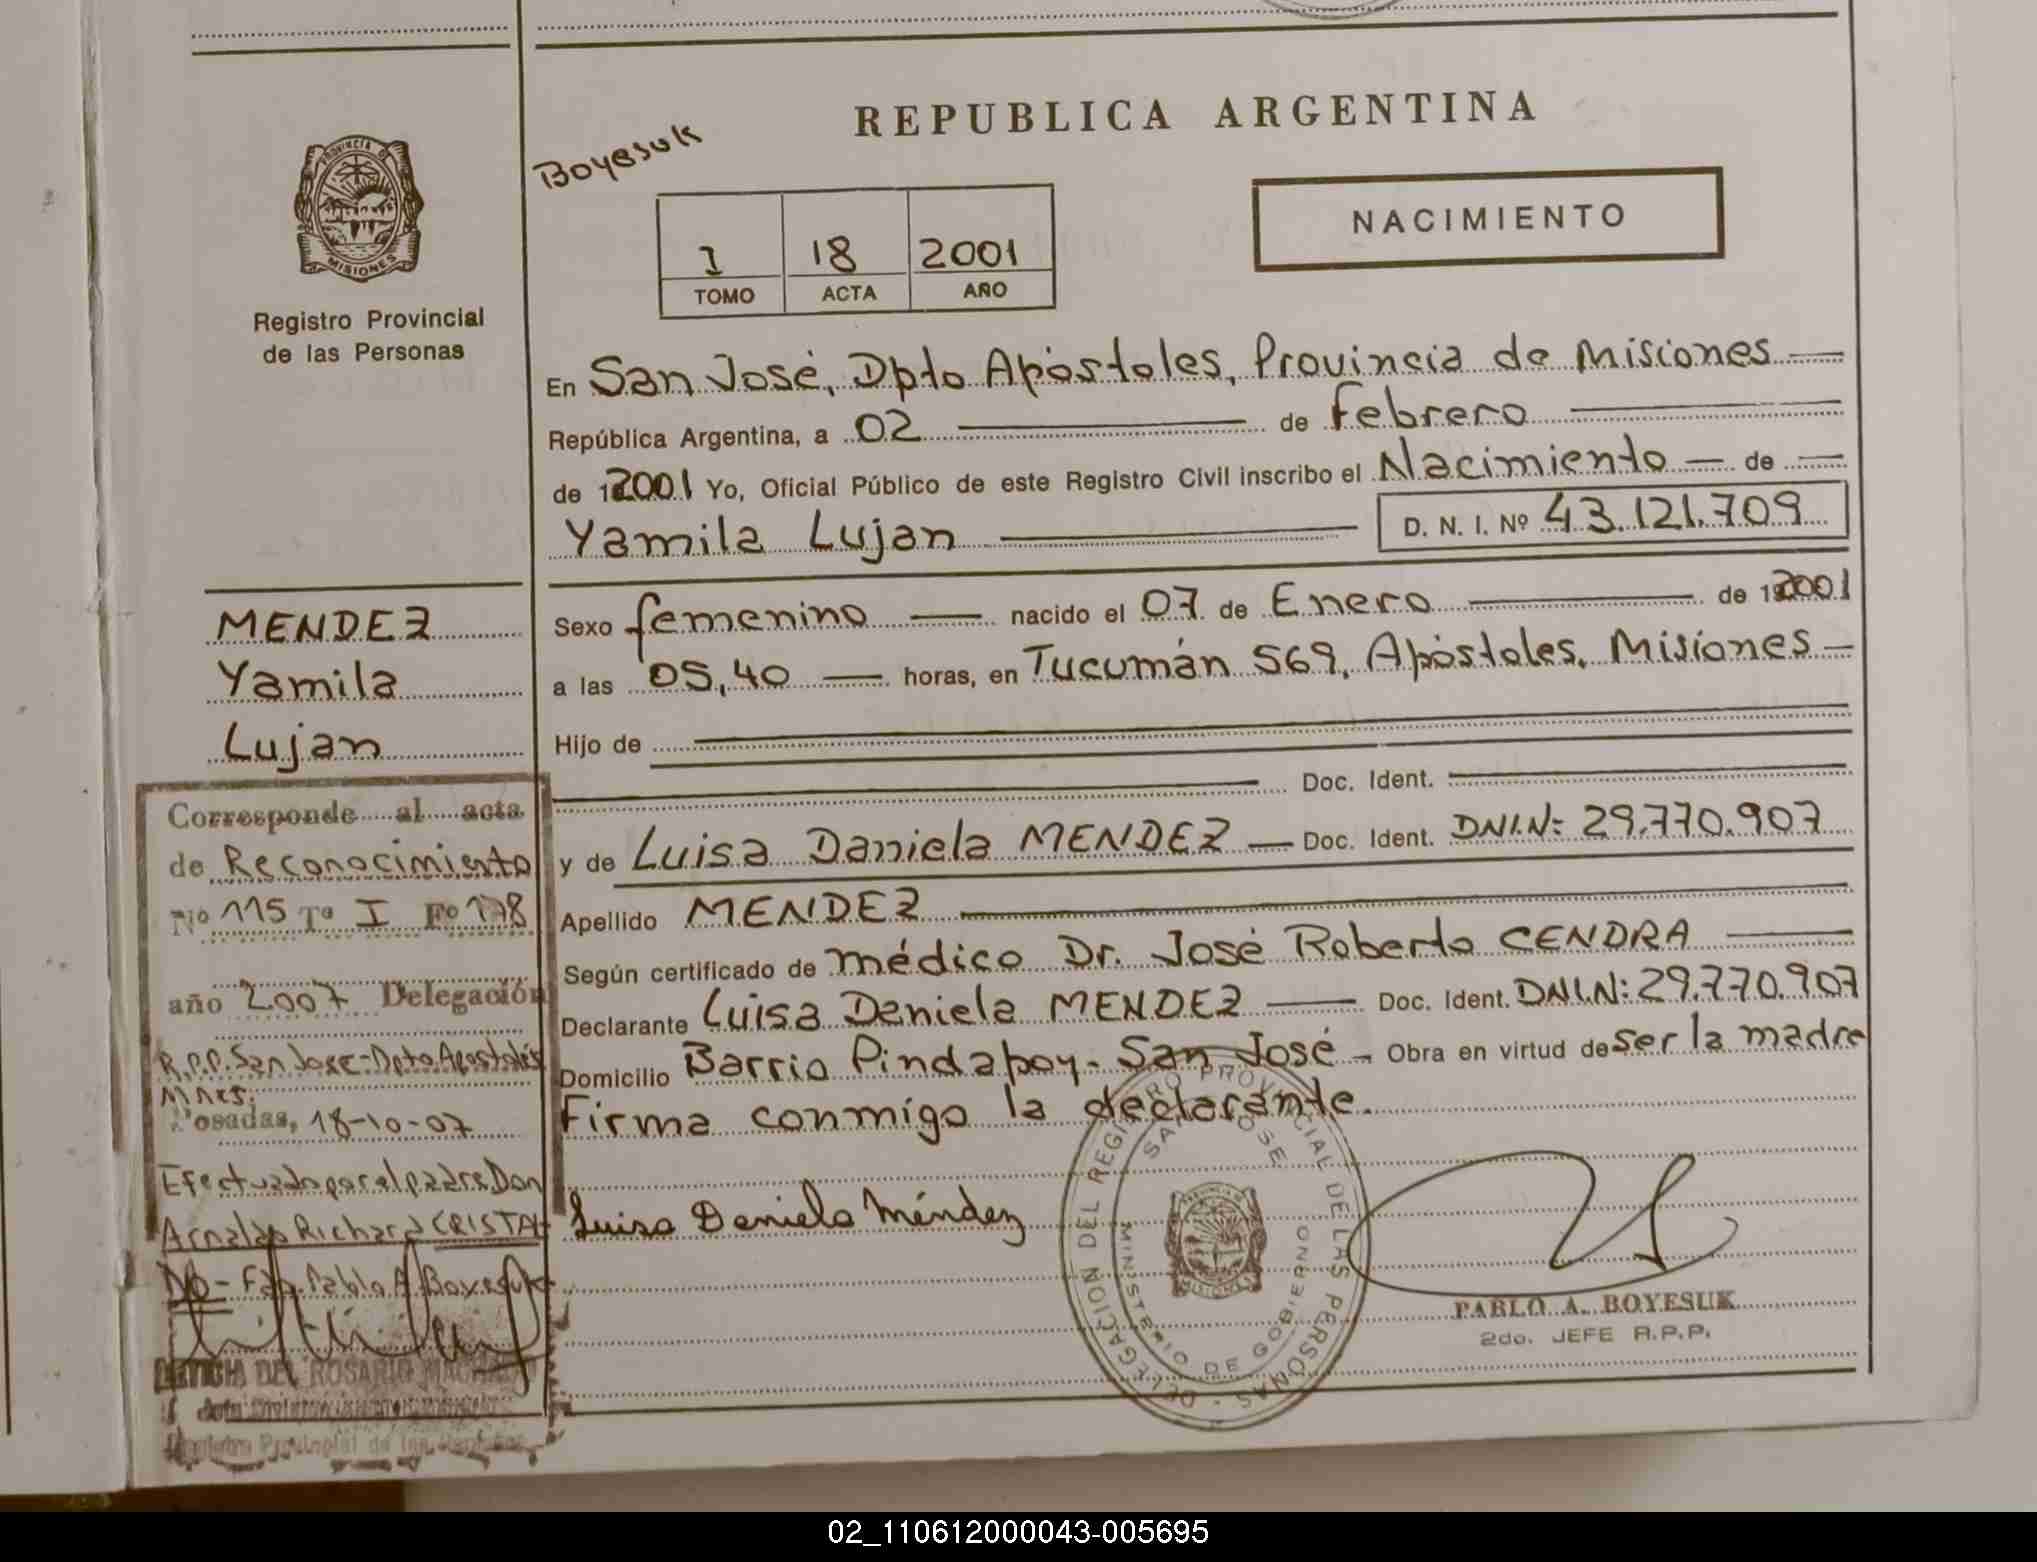 REPUBLICA ARGENTINA
Boyesuk
NACIMIENTO
I 18 2001
TOMO ACTA AÑO
PROVINCIA DE
MISIONES
Registro Provincial
de las Personas
En San José, Dpto Apóstoles, Provincia de Misiones
República Argentina, a 02 de Febrero
de 2001 Yo, Oficial Público de este Registro Civil inscribo el Nacimiento de
Yamila Lujan D. N. I. Nº 43.121.709
MENDEZ
Yamila
Lujan
Sexo femenino nacido el 07 de Enero de 2001
a las 05,40 horas, en Tucumán 569, Apóstoles, Misiones
Hijo de
Doc. Ident.
y de Luisa Daniela MENDEZ Doc. Ident. DNI.N: 29.770.907
Apellido MENDEZ
Según certificado de médico Dr. José Roberto CENDRA
Declarante Luisa Daniela MENDEZ Doc. Ident. DNI.N: 29.770.907
Domicilio Barrio Pindapoy - San José - Obra en virtud de ser la madre
Firma conmigo la declarante.
Luisa Daniela Méndez
Corresponde al acta
de Reconocimiento
Nº 115 Tº I Fº 178
año 2007 Delegación
R.P.P. San Jose - Dpto Apostoles
Mnes.
Posadas, 18-10-07
Efectuado por el padre Don
Arnaldo Richard CRISTAL
DO - Fdo. Pablo A. Boyesuk
LETICIA DEL ROSARIO
Registro Provincial de las Personas
DELEGACION DEL REGISTRO PROVINCIAL DE LAS PERSONAS
SAN JOSE
MINISTERIO DE GOBIERNO
MISIONES
PABLO A. BOYESUK
2do. JEFE R.P.P.
02_110612000043-005695